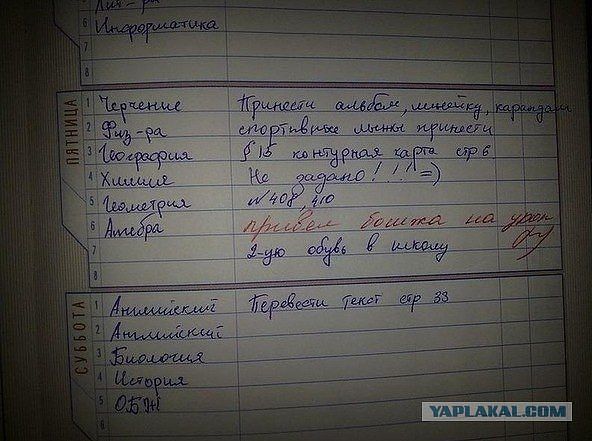 Лит-ра
6 Информатика
7
8
ПЯТНИЦА
1 Черчение Принести альбом, линейку, карандаш
2 Физ-ра спортивные лыжи принести
3 География §15 контурная карта стр 6.
4 Химия Не задано! ! ! ! =)
5 Геометрия №408, 410
6 Алгебра привел бомжа на урок
7 2-ую обувь в школу
8
СУББОТА
1 Английский Перевести текст стр 33
2 Английский
3 Биология
4 История
5 ОБЖ
YAPLAKAL.COM